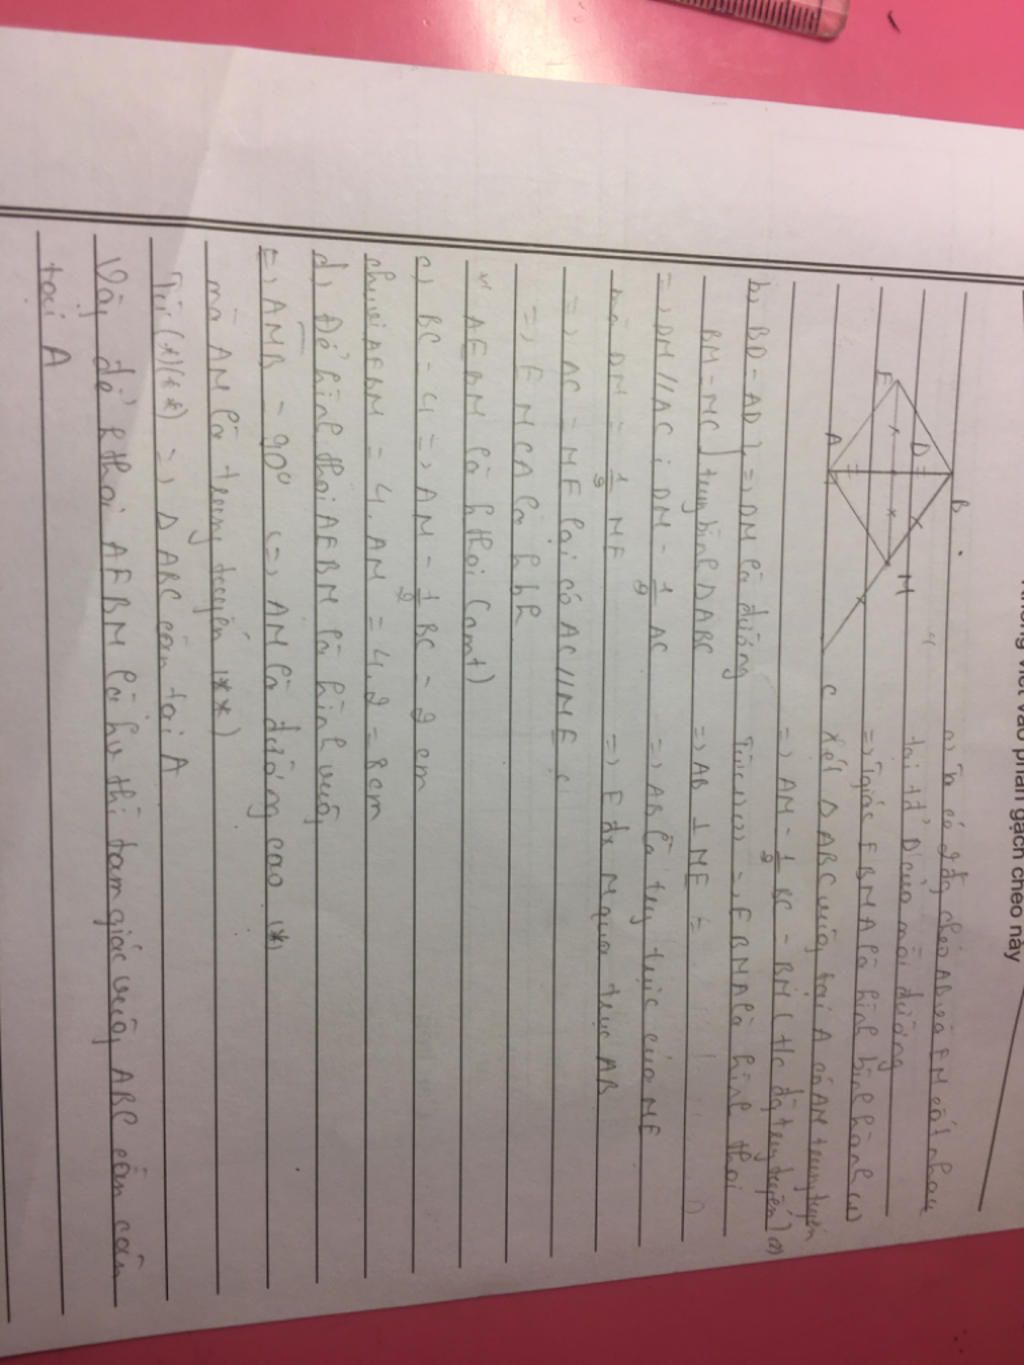 Không viết vào phần gạch chéo này
B
D
E
M
A
C
a) Ta có 2 đg chéo AB và EM cắt nhau
tại tđ' D của mỗi đường
=> Tgiác EBMA là hình bình hành (1)
Xét Δ ABC vuông tại A có AM trung tuyến
=> AM = 1/2 BC = BM (t/c đg trung tuyến) (2)
Từ (1) (2) => EBMA là hình thoi
b) BD = AD } => DM là đường
BM = MC } trung bình Δ ABC
=> AB ⊥ ME
=> DM // AC ; DM = 1/2 AC
=> AB là trug trực của ME
mà DM = 1/2 ME
=> E đx M qua trục AB
=> AC = ME lại có AC // ME
=> EMCA là hbh
AEBM là hthoi (cmt)
c) BC = 4 => AM = 1/2 BC = 2 cm
chu vi AEBM = 4. AM = 4. 2 = 8cm
d) Để hình thoi AEBM là hình vuông
=> AMB = 90° <=> AM là đường cao (*)
mà AM là trung tuyến (**)
Từ (*) (**) => Δ ABC cân tại A
Vậy để hthoi AEBM là hv thì tam giác vuông ABC cần cân
tại A